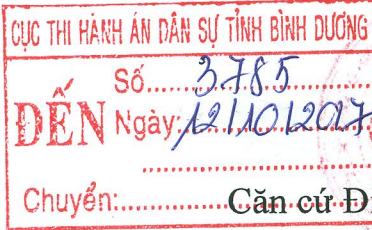 CỤC THI HÀNH ÁN DÂN SỰ TỈNH BÌNH DƯƠNG
Số......3785
ĐẾN Ngày:12/10/2017
Chuyển:............... Căn cứ